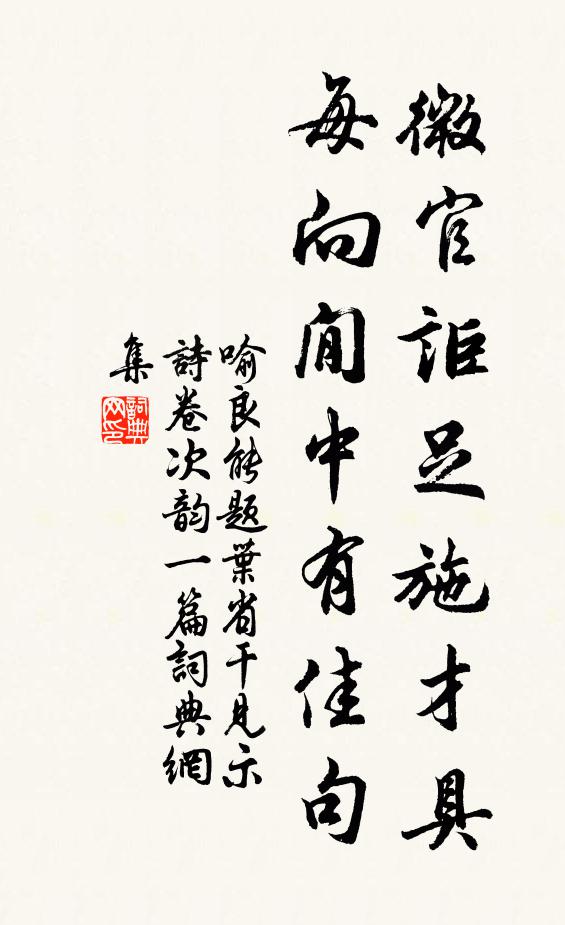 微官詎足施才具
每向閒中有佳句
喻良能題葉省干見示
詩卷次韵一篇詞典網
集
詞典网印